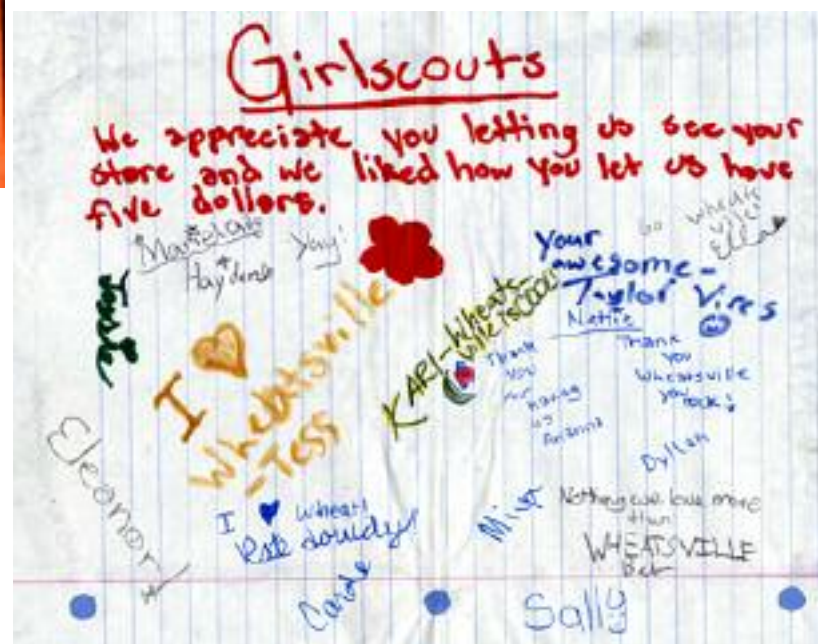 Girlscouts
We appreciate you letting us see your
store and we liked how you let us have
five dollars.
Yay!
Go Wheats
ville
Ella
Your
awesome-
Taylor Vires
Nettie
I
Wheatsville
-Tess
KARI-Wheats-
ville is COOL!
Thank
You
for
Having
us
Arianna
Thank
You
Wheatsville
you
rock!
Dyllan
Eleanor
I Wheats
Mist
Nothing we love more
than
WHEATSVILLE
Carole
Sally